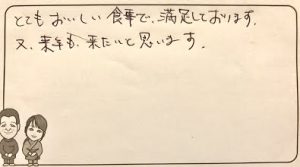 とてもおいしい食事で、満足しております。
又、来年も、来たいと思います。